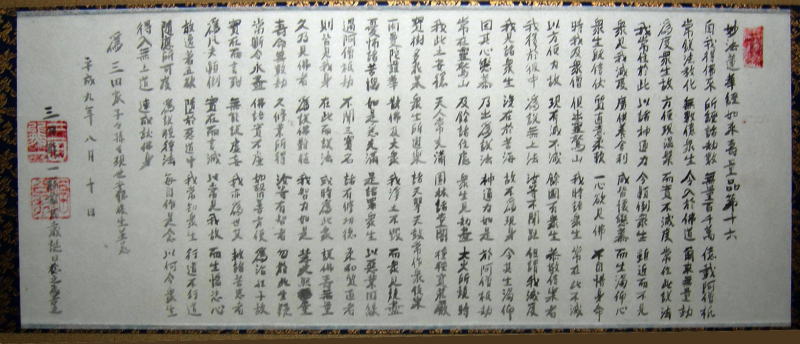 妙法蓮華経如来寿量品第十六
自我得佛来 所経諸劫数 無量百千萬 億載阿僧祇
常説法教化 無数億衆生 令入於佛道 爾来無量劫
為度衆生故 方便現涅槃 而実不滅度 常住此説法
我常住於此 以諸神通力 令顛倒衆生 雖近而不見
衆見我滅度 廣供養舎利 咸皆懐恋慕 而生渇仰心
衆生既信伏 質直意柔軟 一心欲見佛 不自惜身命
時我及衆僧 倶出霊鷲山 我時語衆生 常在此不滅
以方便力故 現有滅不滅 餘国有衆生 恭敬信楽者
我復於彼中 為説無上法 汝等不聞此 但謂我滅度
我見諸衆生 没在於苦海 故不為現身 令其生渇仰
因其心恋慕 乃出為説法 神通力如是 於阿僧祇劫
常在霊鷲山 及餘諸住処 衆生見劫盡 大火所焼時
我此土安穏 天人常充満 園林諸堂閣 種種宝荘厳
寶樹多花菓 衆生所遊楽 諸天撃天鼓 常作衆伎楽
雨曼陀羅華 散佛及大衆 我浄土不毀 而衆見焼盡
憂怖諸苦悩 如是悉充満 是諸罪衆生 以悪業因縁
過阿僧祇劫 不聞三寶名 諸有修功徳 柔和質直者
則皆見我身 在此而説法 或時為此衆 説佛寿無量
久乃見佛者 為説佛難値 我智力如是 慧光照無量
寿命無数劫 久修業所得 汝等有智者 勿於此生疑
當断令永盡 佛語実不虚 如医善方便 為治狂子故
実在而言死 無能説虚妄 我亦為世父 救諸苦患者
為凡夫顛倒 実在而言滅 以常見我故 而生憍恣心
放逸著五欲 堕於悪道中 我常知衆生 行道不行道
随應所可度 為説種種法 毎自作是念 以何令衆生
得入無上道 速成就佛身
為 三田
平成九年八月十日